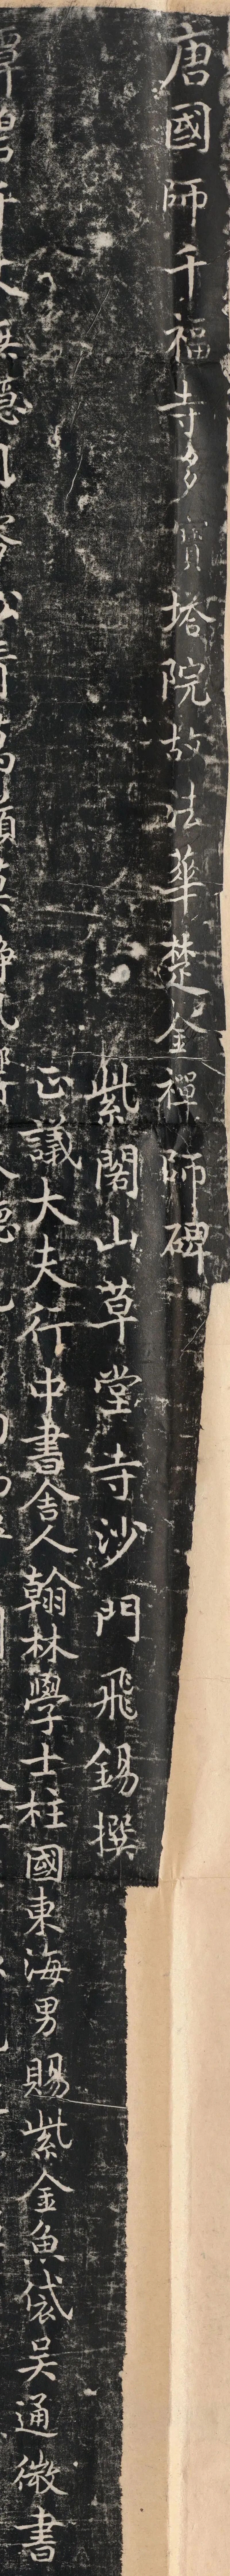 唐國師千福寺多寶塔院故法華楚金禪師碑
紫閣山草堂寺沙門飛錫撰
正議大夫行中書舍人翰林學士柱國東海男賜紫金魚袋吳通微書